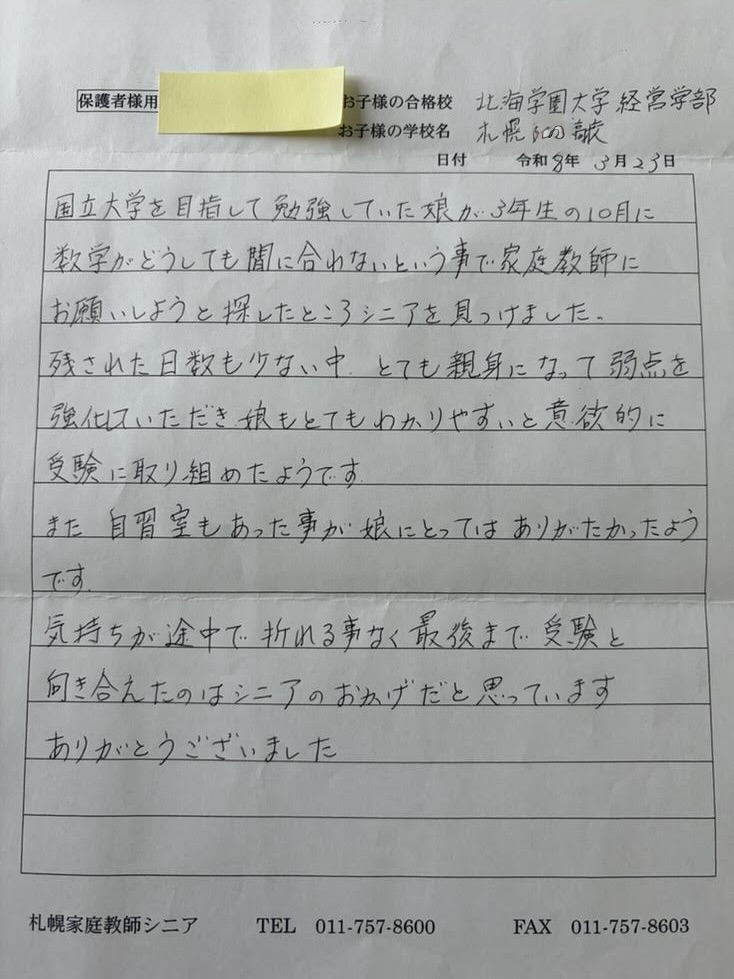 保護者様用 お子様の合格校 北海学園大学 経営学部
お子様の学校名 札幌 高校
日付 令和8年 3月23日
国立大学を目指して勉強していた娘が3年生の10月に
数学がどうしても間に合わないという事で家庭教師に
お願いしようと探したところシニアを見つけました。
残された日数も少ない中 とても親身になって弱点を
強化していただき 娘もとてもわかりやすいと意欲的に
受験に取り組めたようです
また 自習室もあった事が娘にとってはありがたかったよう
です
気持ちが途中で折れる事なく最後まで受験と
向き合えたのはシニアのおかげだと思っています
ありがとうございました
札幌家庭教師シニア TEL 011-757-8600 FAX 011-757-8603